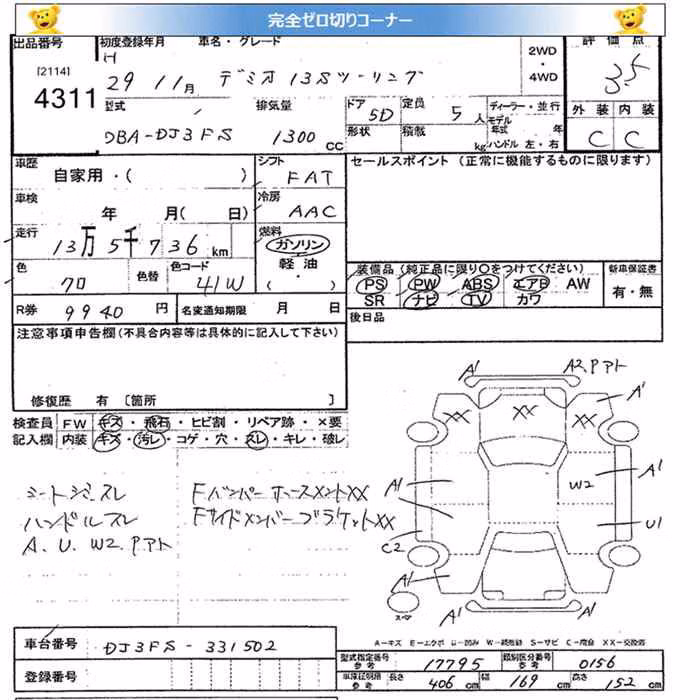 完全ゼロ切りコーナー
出品番号 初度登録年月 車名・グレード 2WD ・ 4WD 評価点
[2114] H 29 11月 デミオ 13Sツーリング 3.5
4311 型式 排気量 ドア 5D 定員 5人 ディーラー・並行 外装 内装
DBA-DJ3FS 1300 CC 形状 積載 kg モデル年式 年 ハンドル 左・右 C C
車歴 自家用・( ) シフト FAT セールスポイント (正常に機能するものに限ります)
車検 年 月( 日) 冷房 AAC
走行 13万5千736km 燃料 ガソリン・軽油・( )
色 クロ 色替 色コード 41W 装備品 (純正品に限り〇をつけてください) 新車保証書
PS PW ABS エアB AW 有・無
R券 9940円 名変通知期限 月 日 SR ナビ TV カワ
注意事項申告欄(不具合内容等は具体的に記入して下さい) 後日品
修復歴 有 〔箇所 〕
検査員 FW キズ・飛石・ヒビ割・リペア跡・×要
記入欄 内装 キズ・汚レ・コゲ・穴・スレ・キレ・破レ
シートジミ、スレ FバンパーホースメントXX
ハンドルスレ FサイドメンバーブラケットXX
A、U、W2、Pアト
A1 A2、Pアト
A1
XX XX XX
A1 W2 A1
C2 U1
A1
スペア A1 A1
A-キズ E-エクボ U-凹み W-補修跡 S-サビ C-腐食 XX-交換済
車台番号 DJ3FS-331502
型式指定番号 参考 17795 類別区分番号 参考 0156
登録番号 車検証明除 参考 長さ 406cm 幅 169cm 高さ 152cm